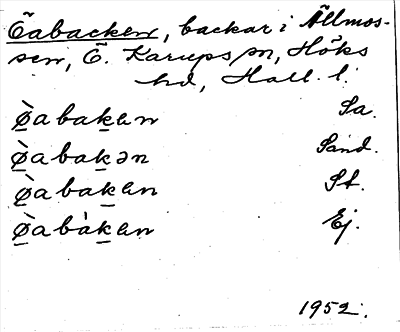 Öabacken, backar i Ällmos-
sen, Ö. Karups sn, Höks
hd, Hall. l.
ø̀abakɘn Sa.
ø̀abakən Sand.
ø̀abakɘn St.
ø̀abàkɘn Ej.
1952.